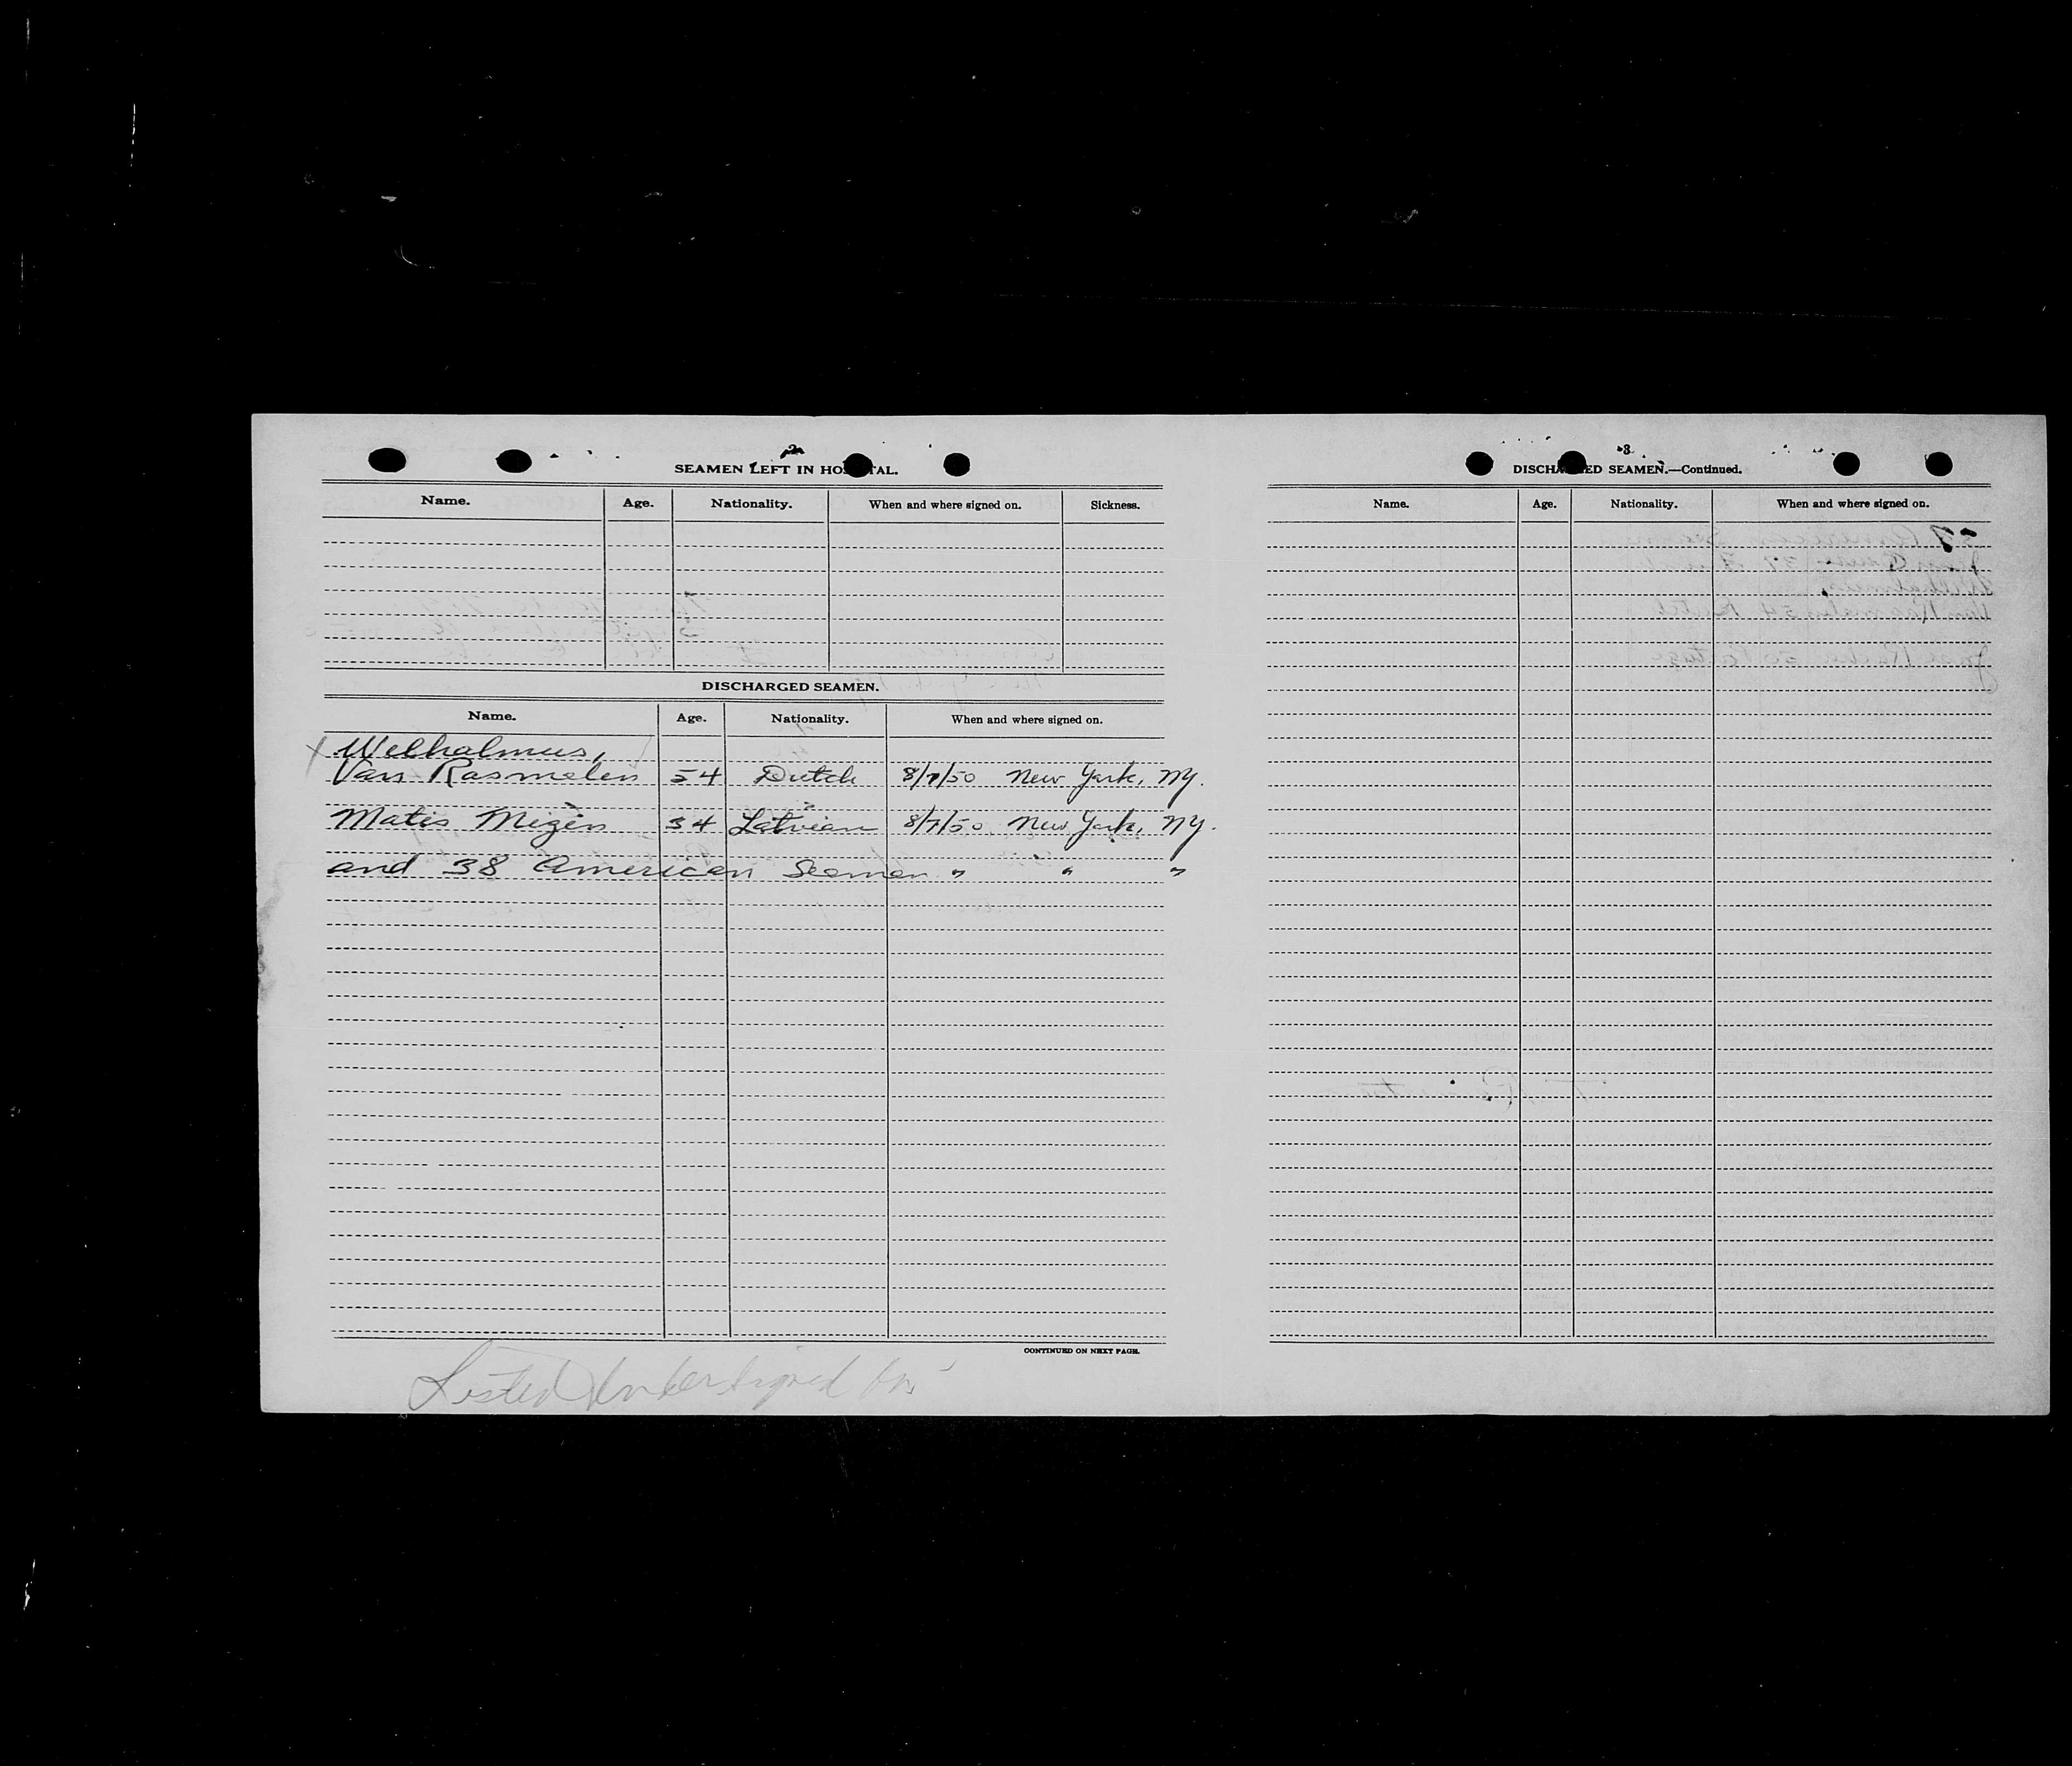 2
SEAMEN LEFT IN HOSPITAL.
Name. Age. Nationality. When and where signed on. Sickness.
DISCHARGED SEAMEN.
Name. Age. Nationality. When and where signed on.
X Welhalmus,
Van Rasmelen 54 Dutch 8/7/50 New York, NY.
Matis Migins 34 Latvian 8/7/50 New York, NY.
and 38 American Seamen " " "
CONTINUED ON NEXT PAGE.
Listed Under Signed On
3
DISCHARGED SEAMEN.—Continued.
Name. Age. Nationality. When and where signed on.